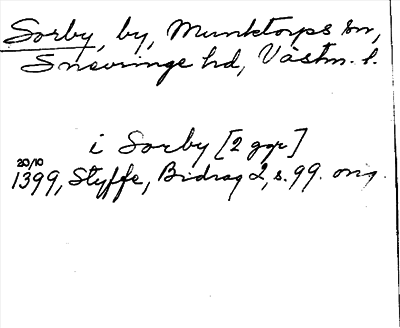 Sorby, by, Munktorps sn,
Snevringe hd, Västm. l.
i Sorby [2 ggr]
20/10
1399, Styffe, Bidrag 2, s. 99. orig.